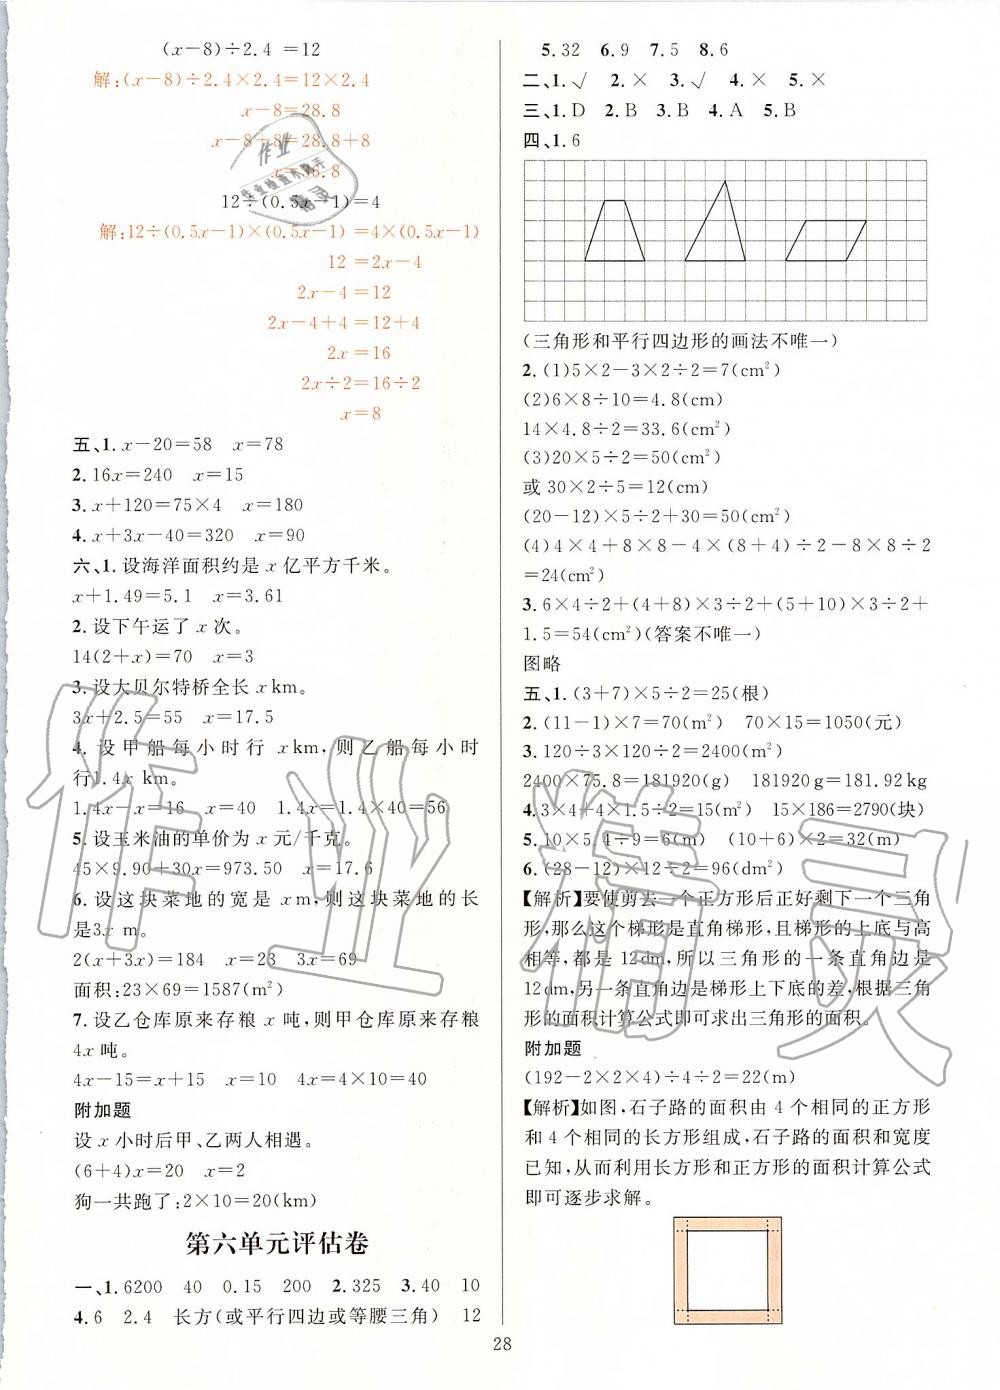 (x－8)÷2.4 ＝12
解:(x－8)÷2.4×2.4＝12×2.4
x－8＝28.8
x－8＋8＝28.8＋8
x＝36.8
12÷(0.5x－1)＝4
解:12÷(0.5x－1)×(0.5x－1)＝4×(0.5x－1)
12＝2x－4
2x－4＝12
2x－4＋4＝12＋4
2x＝16
2x÷2＝16÷2
x＝8
五、1. x－20＝58 x＝78
2. 16x＝240 x＝15
3. x＋120＝75×4 x＝180
4. x＋3x－40＝320 x＝90
六、1. 设海洋面积约是 x 亿平方千米。
x＋1.49＝5.1 x＝3.61
2. 设下午运了 x 次。
14(2＋x)＝70 x＝3
3. 设大贝尔特桥全长 x km。
3x＋2.5＝55 x＝17.5
4. 设甲船每小时行 x km,则乙船每小时
行1.4x km。
1.4x－x＝16 x＝40 1.4x＝1.4×40＝56
5. 设玉米油的单价为 x 元/千克。
45×9.90＋30x＝973.50 x＝17.6
6. 设这块菜地的宽是 x m,则这块菜地的长
是3x m。
2(x＋3x)＝184 x＝23 3x＝69
面积:23×69＝1587(m²)
7. 设乙仓库原来存粮 x 吨,则甲仓库原来存粮
4x 吨。
4x－15＝x＋15 x＝10 4x＝4×10＝40
附加题
设 x 小时后甲、乙两人相遇。
(6＋4)x＝20 x＝2
狗一共跑了:2×10＝20(km)
第六单元评估卷
一、1. 6200 40 0.15 200 2. 325 3. 40 10
4. 6 2.4 长方(或平行四边或等腰三角) 12
5. 32 6. 9 7. 5 8. 6
二、1. √ 2. × 3. √ 4. × 5. ×
三、1. D 2. B 3. B 4. A 5. B
四、1. 6
(三角形和平行四边形的画法不唯一)
2. (1)5×2－3×2÷2＝7(cm²)
(2)6×8÷10＝4.8(cm)
14×4.8÷2＝33.6(cm)
(3)20×5÷2＝50(cm²)
或 30×2÷5＝12(cm)
(20－12)×5÷2＋30＝50(cm²)
(4)4×4＋8×8－4×(8＋4)÷2－8×8÷2
＝24(cm²)
3. 6×4÷2＋(4＋8)×3÷2＋(5＋10)×3÷2＋
1.5＝54(cm²)(答案不唯一)
图略
五、1. (3＋7)×5÷2＝25(根)
2. (11－1)×7＝70(m²) 70×15＝1050(元)
3. 120÷3×120÷2＝2400(m²)
2400×75.8＝181920(g) 181920 g＝181.92 kg
4. 3×4＋4×1.5÷2＝15(m²) 15×186＝2790(块)
5. 10×5.4÷9＝6(m) (10＋6)×2＝32(m)
6. (28－12)×12÷2＝96(dm²)
【解析】要使剪去一个正方形后正好剩下一个三角
形,那么这个梯形是直角梯形,且梯形的上底与高
相等,都是 12 dm,所以三角形的一条直角边是
12 dm,另一条直角边是梯形上下底的差,根据三角
形的面积计算公式即可求出三角形的面积。
附加题
(192－2×2×4)÷4÷2＝22(m)
【解析】如图,石子路的面积由 4 个相同的正方形
和 4 个相同的长方形组成,石子路的面积和宽度
已知,从而利用长方形和正方形的面积计算公式
即可逐步求解。
28
作业精灵